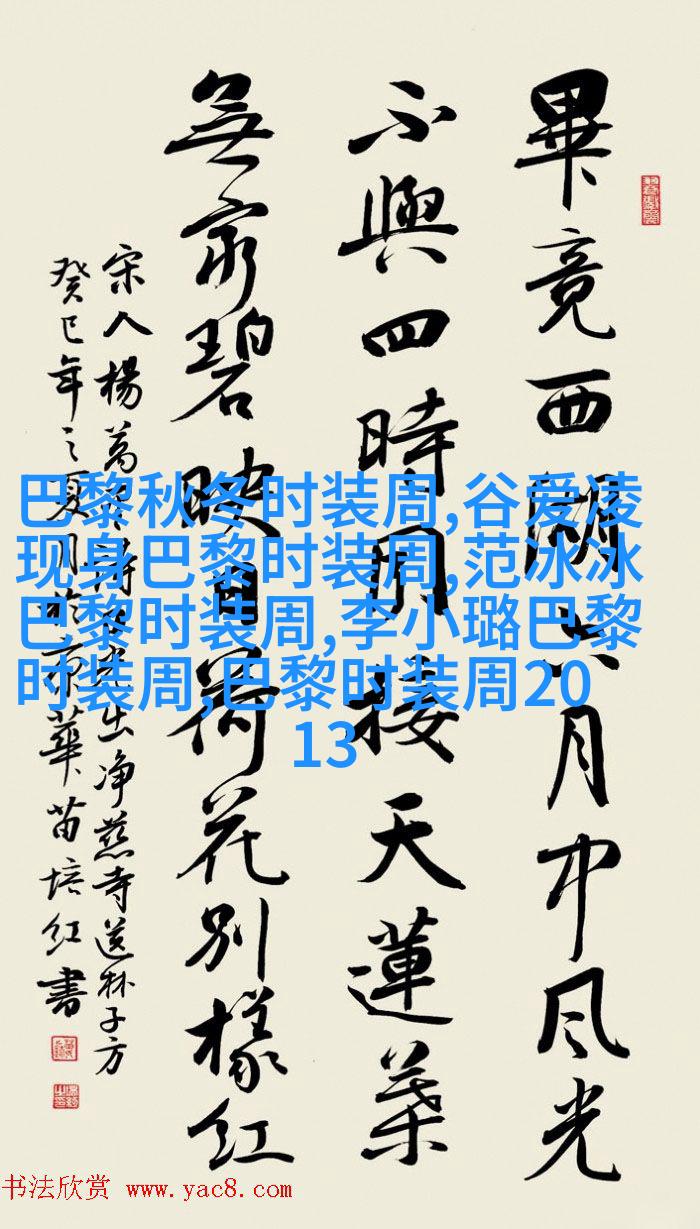 畢竟西湖六月中风光
不與四時同接天蓮葉
無窮碧映日荷花别樣红
宋人楊萬里詩曉出净慈寺送林子方
癸巳年之夏月於京華苗培红書
巴黎秋冬时装周,谷爱凌
现身巴黎时装周,范冰冰
巴黎时装周,李小璐巴黎
时装周,巴黎时装周20
13
书法欣赏 www.yac8.com